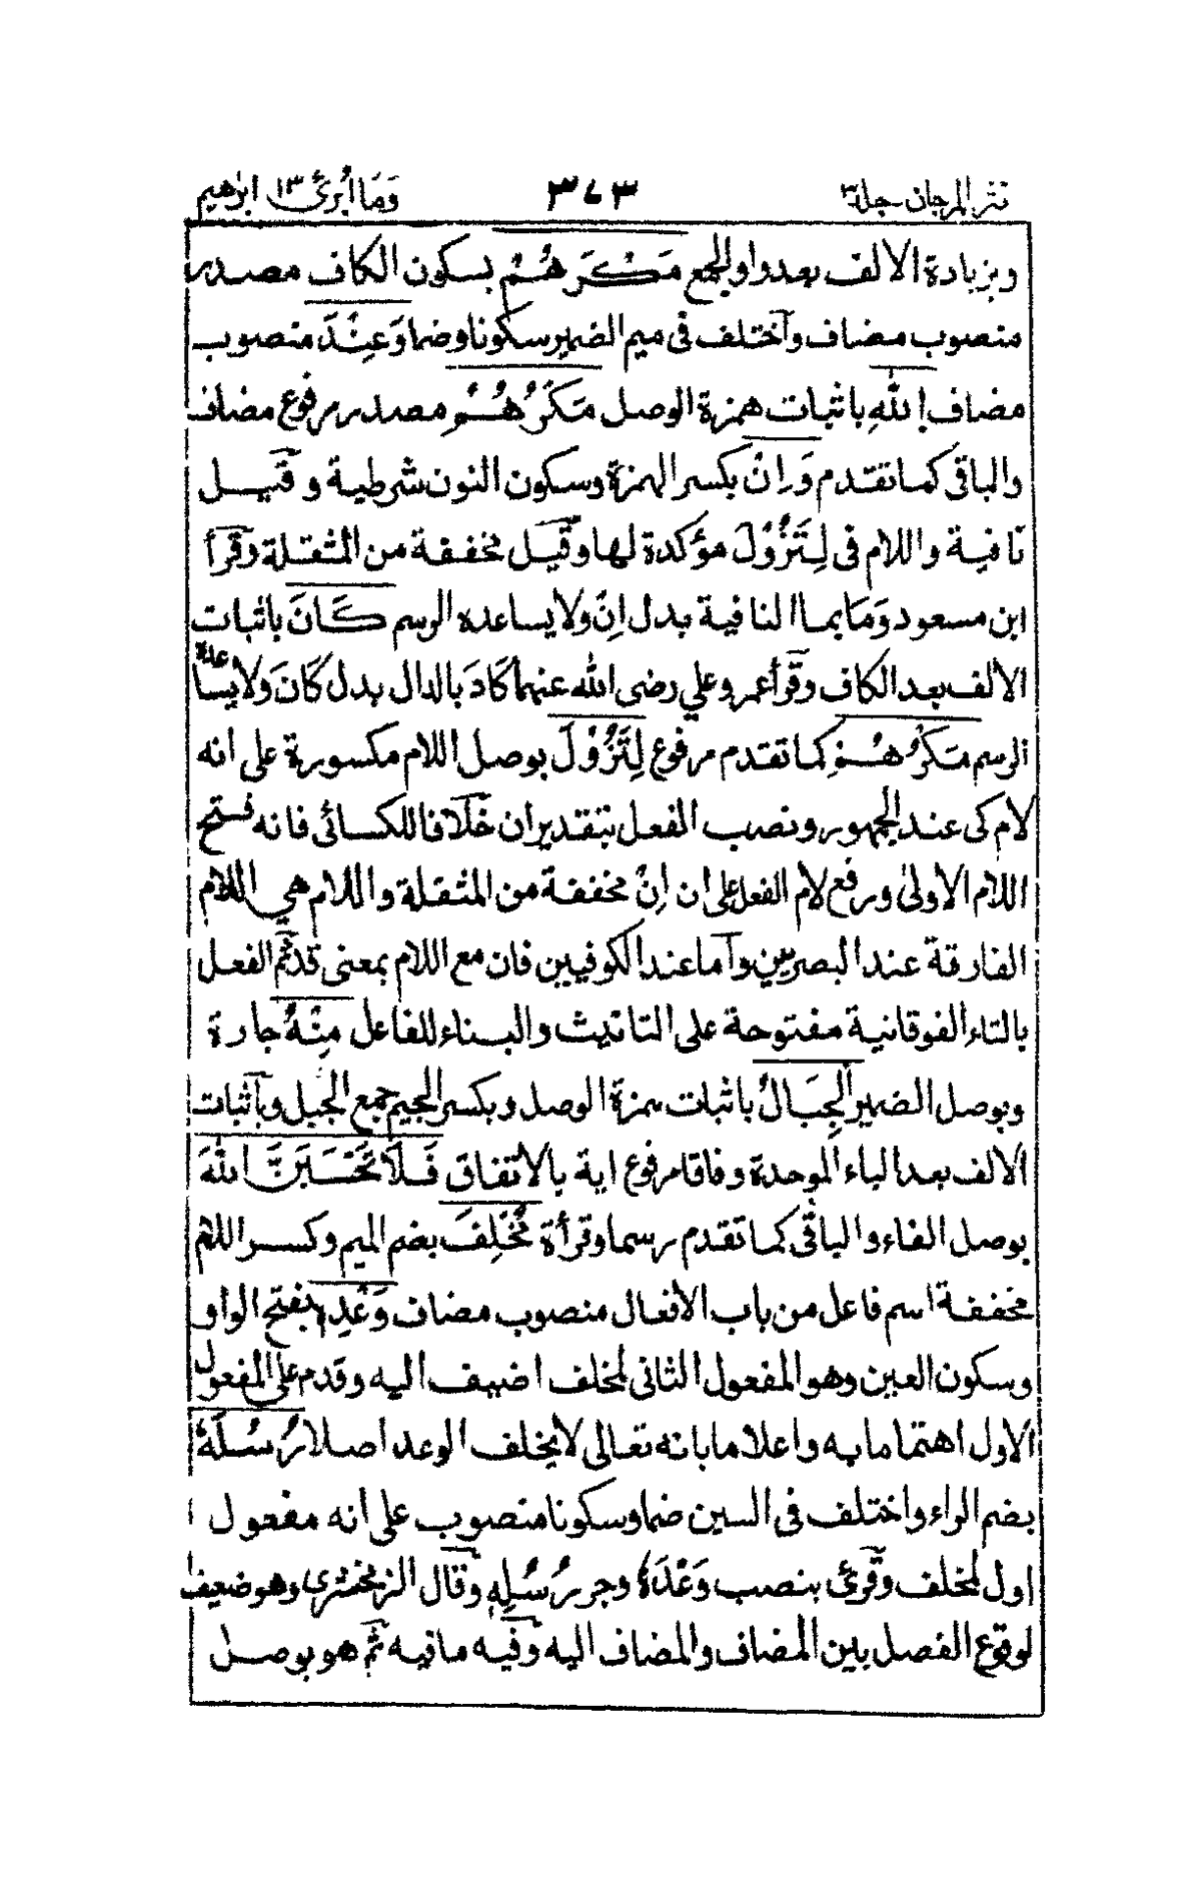 نثر المرجان - جلد ٣ ٣٧٣ وَمَا أُبَرِّئُ ١٣ ابرٰهيم
وبزيادة الالف بعد واو الجمع مَكْرَهُمْ بسكون الكاف مصدر
منصوب مضاف واختلف فى ميم الضمير سكونا وضما وَعِنْدَ منصوب
مضاف اللهِ باثبات همزة الوصل مَكْرُهُمْ مصدر مرفوع مضاف
والباقى كما تقدم وَاِنْ بكسر الهمزة وسكون النون شرطية وقيل
نافية واللام فى لِتَزُوْلَ مؤكدة لها وقيل مخففة من المثقلة وقرأ
ابن مسعود وَمَا بما النافية بدل اِنْ ولا يساعده الرسم كَانَ باثبات
الالف بعد الكاف وقرأ عمر وعلي رضى الله عنهما كَادَ بالدال بدل كَانَ ولا يساعده
الرسم مَكْرُهُمْ كما تقدم مرفوع لِتَزُوْلَ بوصل اللام مكسورة على انه
لام كى عند الجمهور ونصب الفعل بتقدير ان خلافا للكسائى فانه فتح
اللام الاولىٰ ورفع لام الفعل على ان اِنْ مخففة من المثقلة واللام هي اللام
الفارقة عند البصريين وآما عند الكوفيين فان مع اللام بمعنى قد ثم الفعل
بالتاء الفوقانية مفتوحة على التانيث والبناء للفاعل مِنْهُ جارة
وبوصل الضمير الْجِبَالُ باثبات همزة الوصل وبكسر الجيم جمع الجبل وباثبات
الالف بعد الباء الموحدة وفاقا مرفوع اية بالاتفاق فَلَا تَحْسَبَنَّ اللهَ
بوصل الفاء والباقى كما تقدم رسما وقرأة مُخْلِفَ بضم الميم وكسر اللام
مخففة اسم فاعل من باب الافعال منصوب مضاف وَعْدِهٖ بفتح الواو
وسكون العين وهو المفعول الثانى لمخلف اضيف اليه وقدم على المفعول
الاول اهتماما به واعلاما بانه تعالى لا يخلف الوعد اصلا رُسُلَهٗ
بضم الراء واختلف فى السين ضما وسكونا منصوب على انه مفعول
اول لمخلف وقرئ بنصب وَعْدَهٗ وجر رُسُلِهٖ وقال الزمخشرى وهو ضعيف
لوقوع الفصل بين المضاف والمضاف اليه وفيه ما فيه ثم هو بوصل